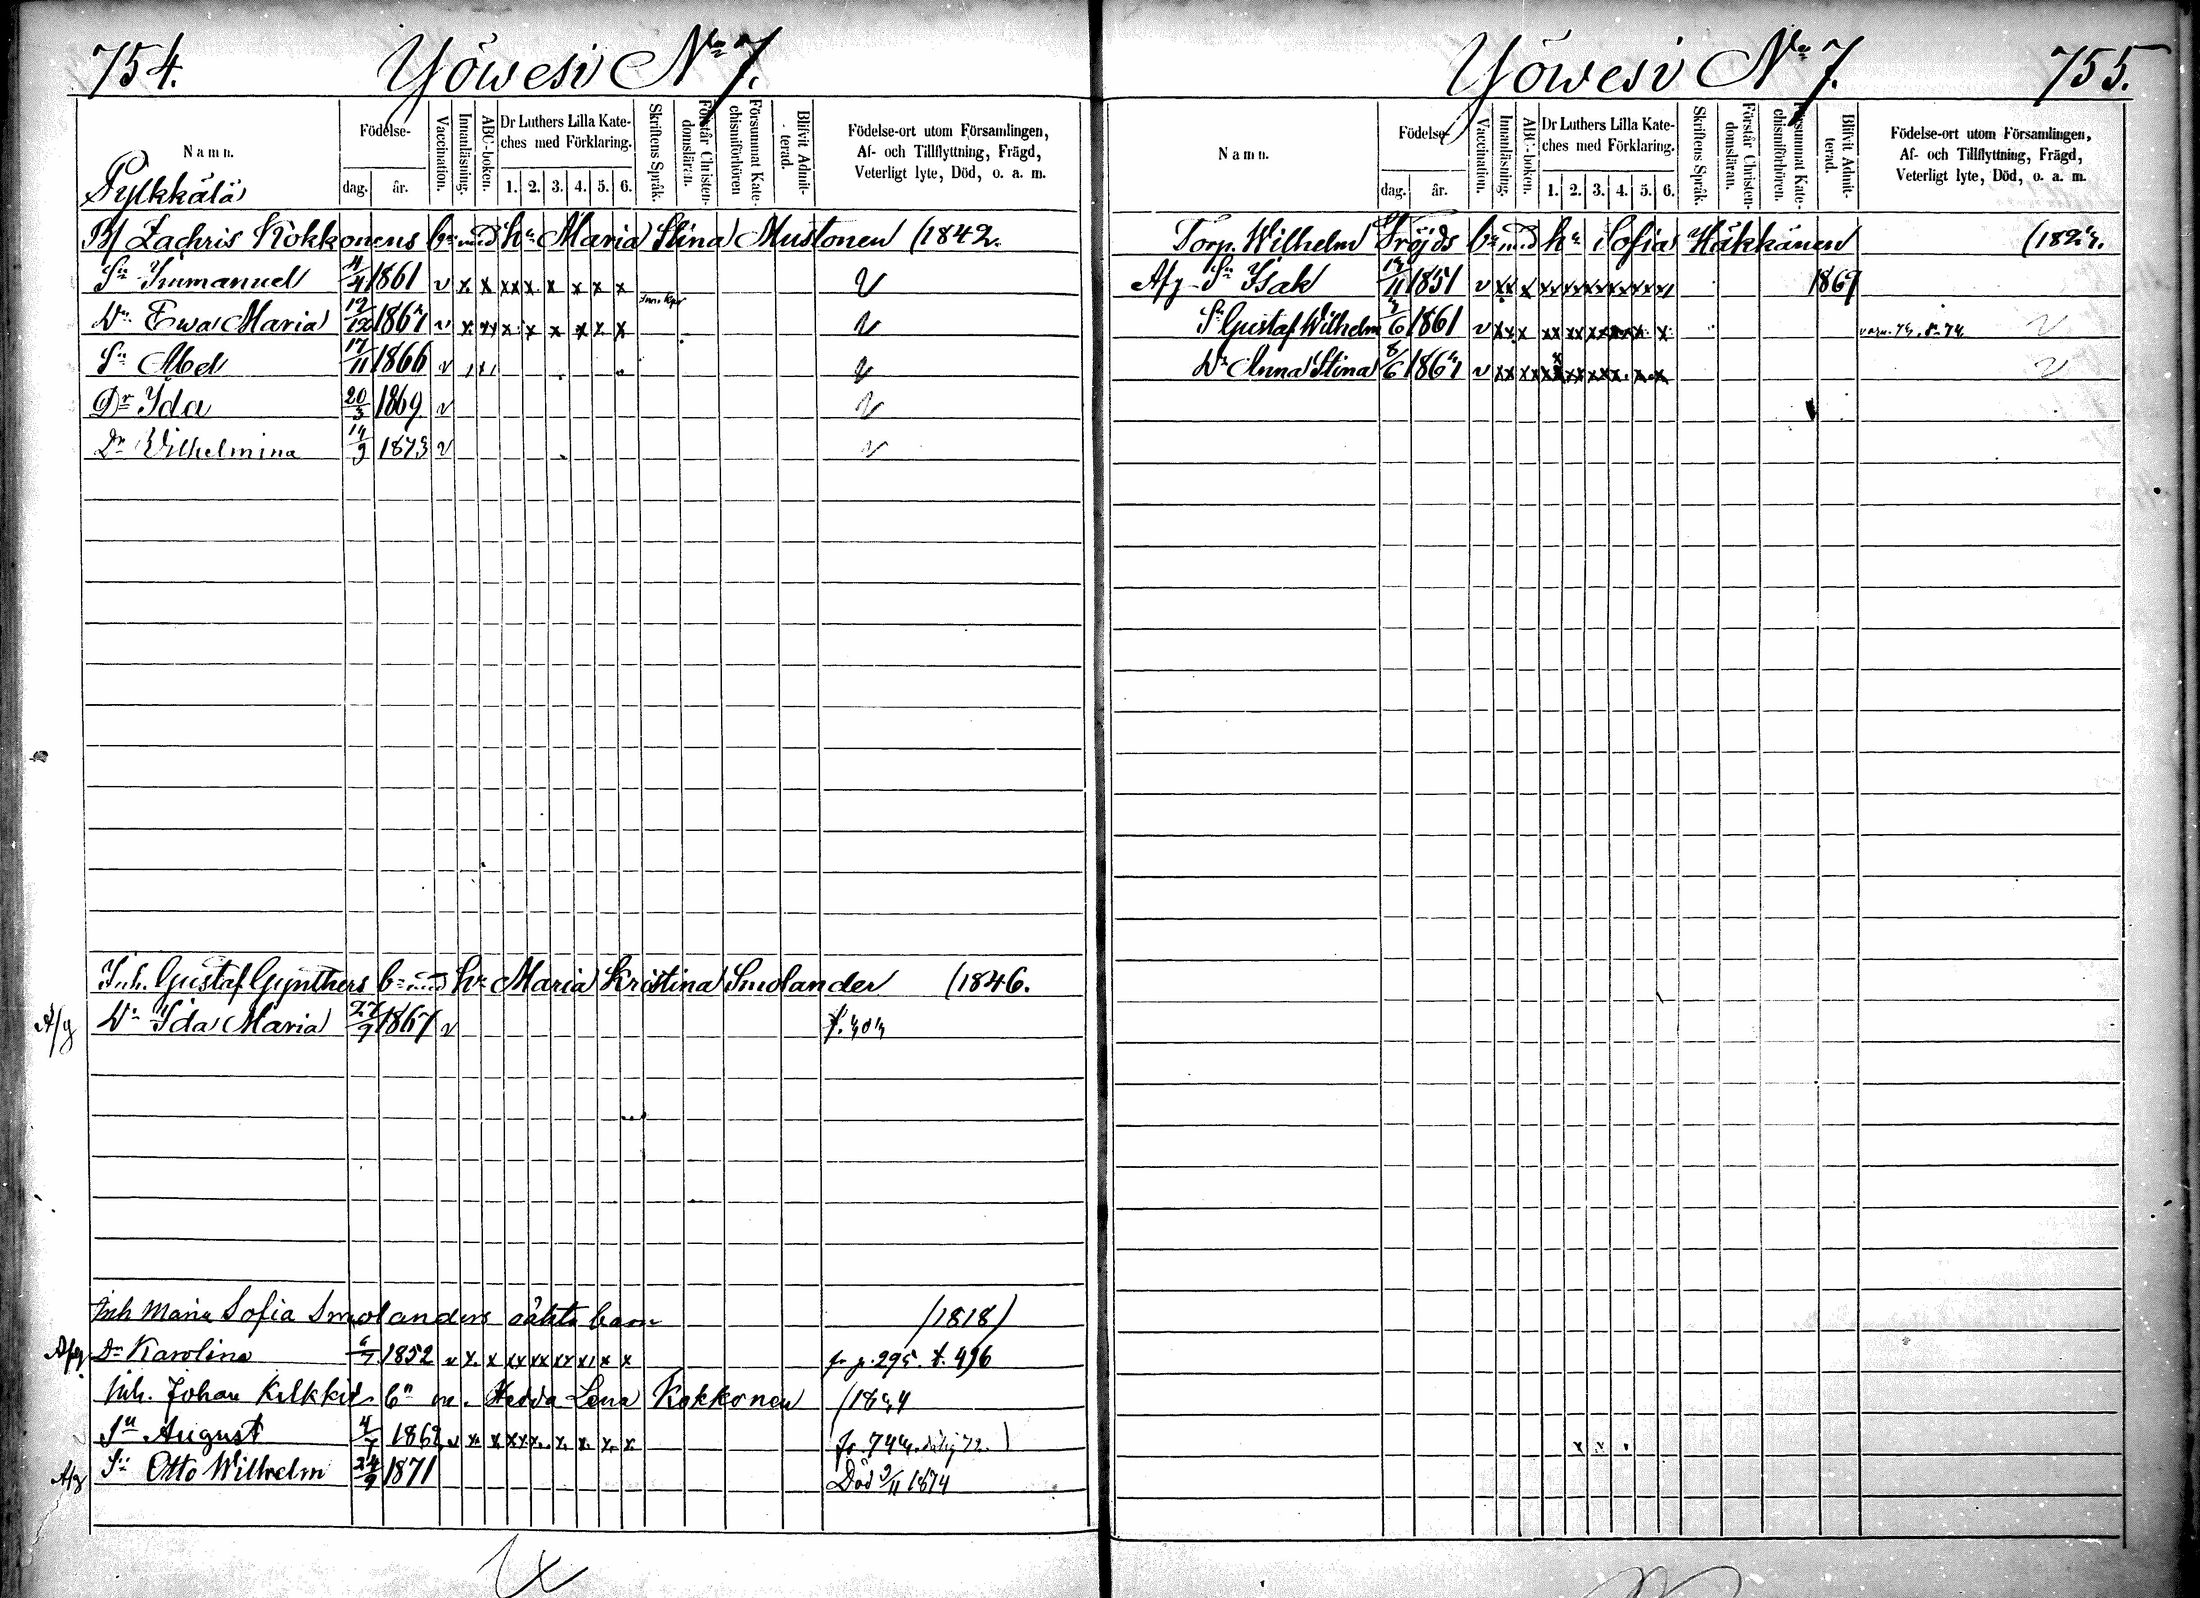 754.
Yöwesi No 7.
Namn.
Födelse-
dag.
år.
Vaccination.
Innanläsning.
ABC-boken.
Dr Luthers Lilla Kate-
ches med Förklaring.
1. 2. 3. 4. 5. 6.
Skriftens Språk.
Förstår Christen-
domsläran.
Försummat Kate-
chismiförhören
Blifvit Admit-
terad.
Födelse-ort utom Församlingen,
Af- och Tillflyttning, Frägd,
Veterligt lyte, Död, o. a. m.
Pylkkälä
Bf Zachris Kokkonens bn med hu Maria Stina Mustonen (1842.
Sn Immanuel 4/4 1861 v x x xx x x x x x v
Dr Ewa Maria 12/12 v x xx x x x x x x v
Sn Abel 17/11 1866 v v
Dr Ida 20/3 1869 v v
Dr Wilhelmina 1873 v v
Inh. Gustaf Gynthers bn med hu Maria Kristina Smolander (1846.
Afg Dr Ida Maria 27/9 1867 v
Inh Maria Sofia Smolanders oäkta barn (1818)
Afg Dr Karolina 1852 v x x xx xx xx x x x fr. p. 295. t. 496
Inh. Johan Kilkkis bn m. Hedda Lena Kokkonen
Sn August 4/7 1862 v x x xx x x x x x
Afg Sn Otto Wilhelm 24/9 1871 Död 3/11 1874
Yöwesi No 7.
755.
Namn.
Födelse-
dag.
år.
Vaccination.
Innanläsning.
ABC-boken.
Dr Luthers Lilla Kate-
ches med Förklaring.
1. 2. 3. 4. 5. 6.
Skriftens Språk.
Förstår Christen-
domsläran.
Försummat Kate-
chismiförhören.
Blifvit Admit-
terad.
Födelse-ort utom Församlingen,
Af- och Tillflyttning, Frägd,
Veterligt lyte, Död, o. a. m.
Torp. Wilhelm Fröjds bn med hu Sofia Häkkänen
Afg Sn Isak 1851 v xx x 1869
Sn Gustaf Wilhelm 1861 v xx x v
Dr Anna Stina 8/6 v xx xx v